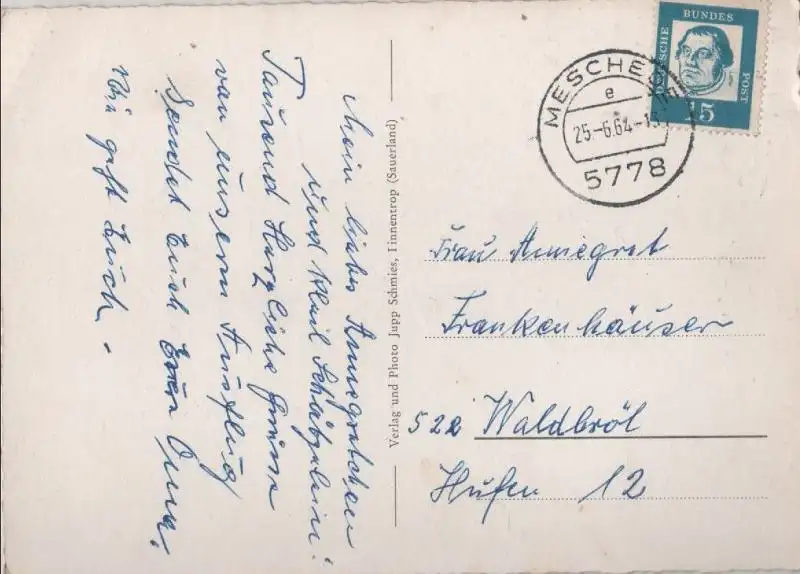 Mein liebes Annegretchen
und Kleil Schätzelein!
Tausend Herzliche Grüsse
von unserm Ausflug
sendet Euch Eure Oma.
Wie geht Euch.
Verlag und Photo Jupp Schmies, Finnentrop (Sauerland)
DEUTSCHE BUNDES POST
15
MESCHEDE
e
25.-6.64-15
5778
Frau Annegret
Frankenhäuser
522 Waldbröl
Hufen 12